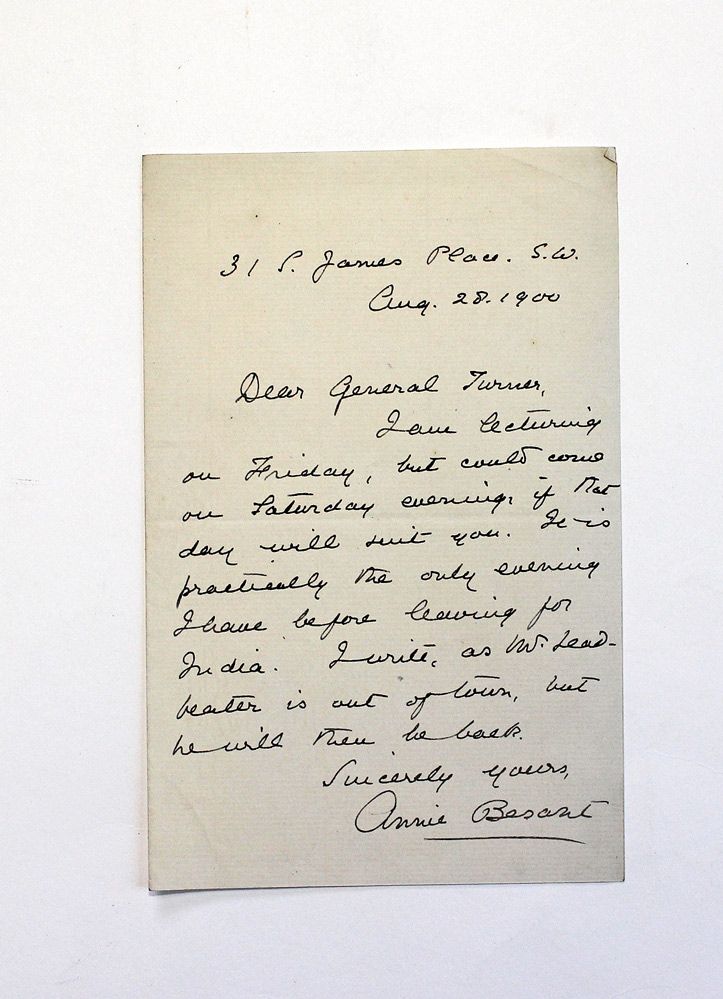 31 S. James Place. S.W.
Aug. 28. 1900
Dear General Turner,
I am lecturing
on Friday, but could come
on Saturday evening, if that
day will suit you. It is
practically the only evening
I have before leaving for
India. I write, as Mr. Lead-
beater is out of town, but
he will then be back.
Sincerely yours,
Annie Besant